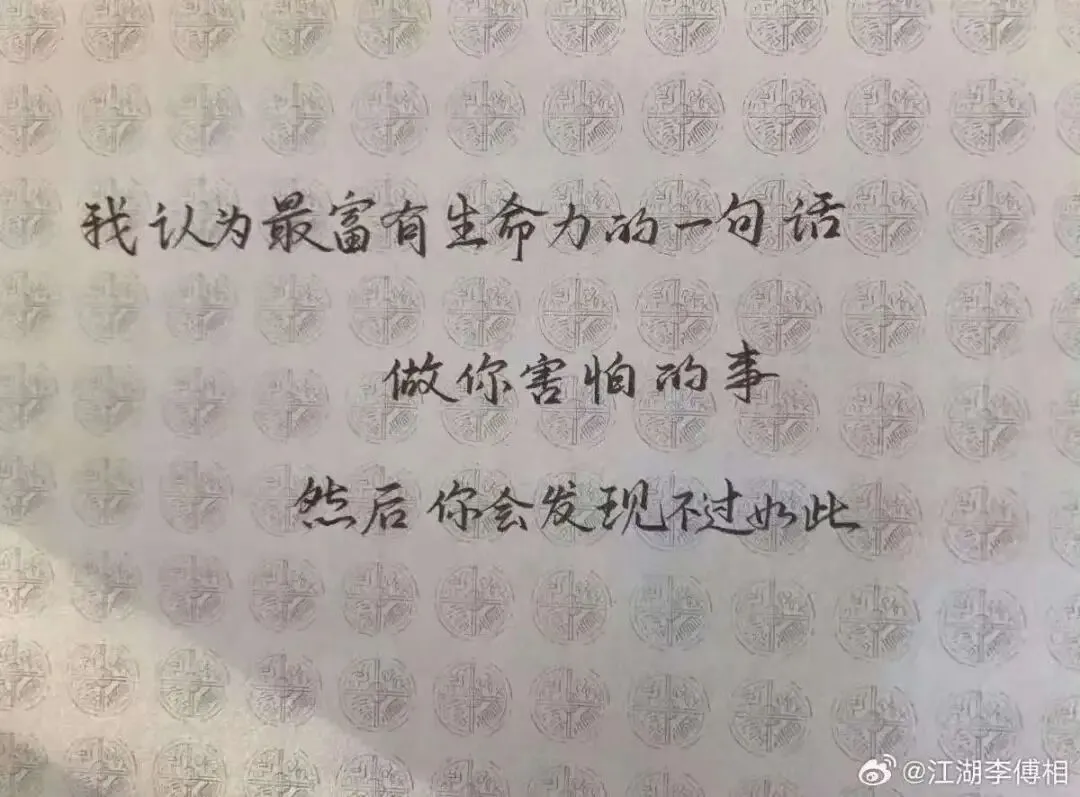 我认为最富有生命力的一句话
做你害怕的事
然后你会发现不过如此
@江湖李傅相